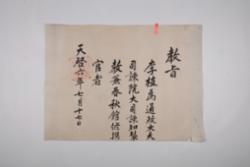 教旨
李植為通政大夫
司諫院大司諫知製
教兼春秋館修撰
官者
天啓六年七月十七日